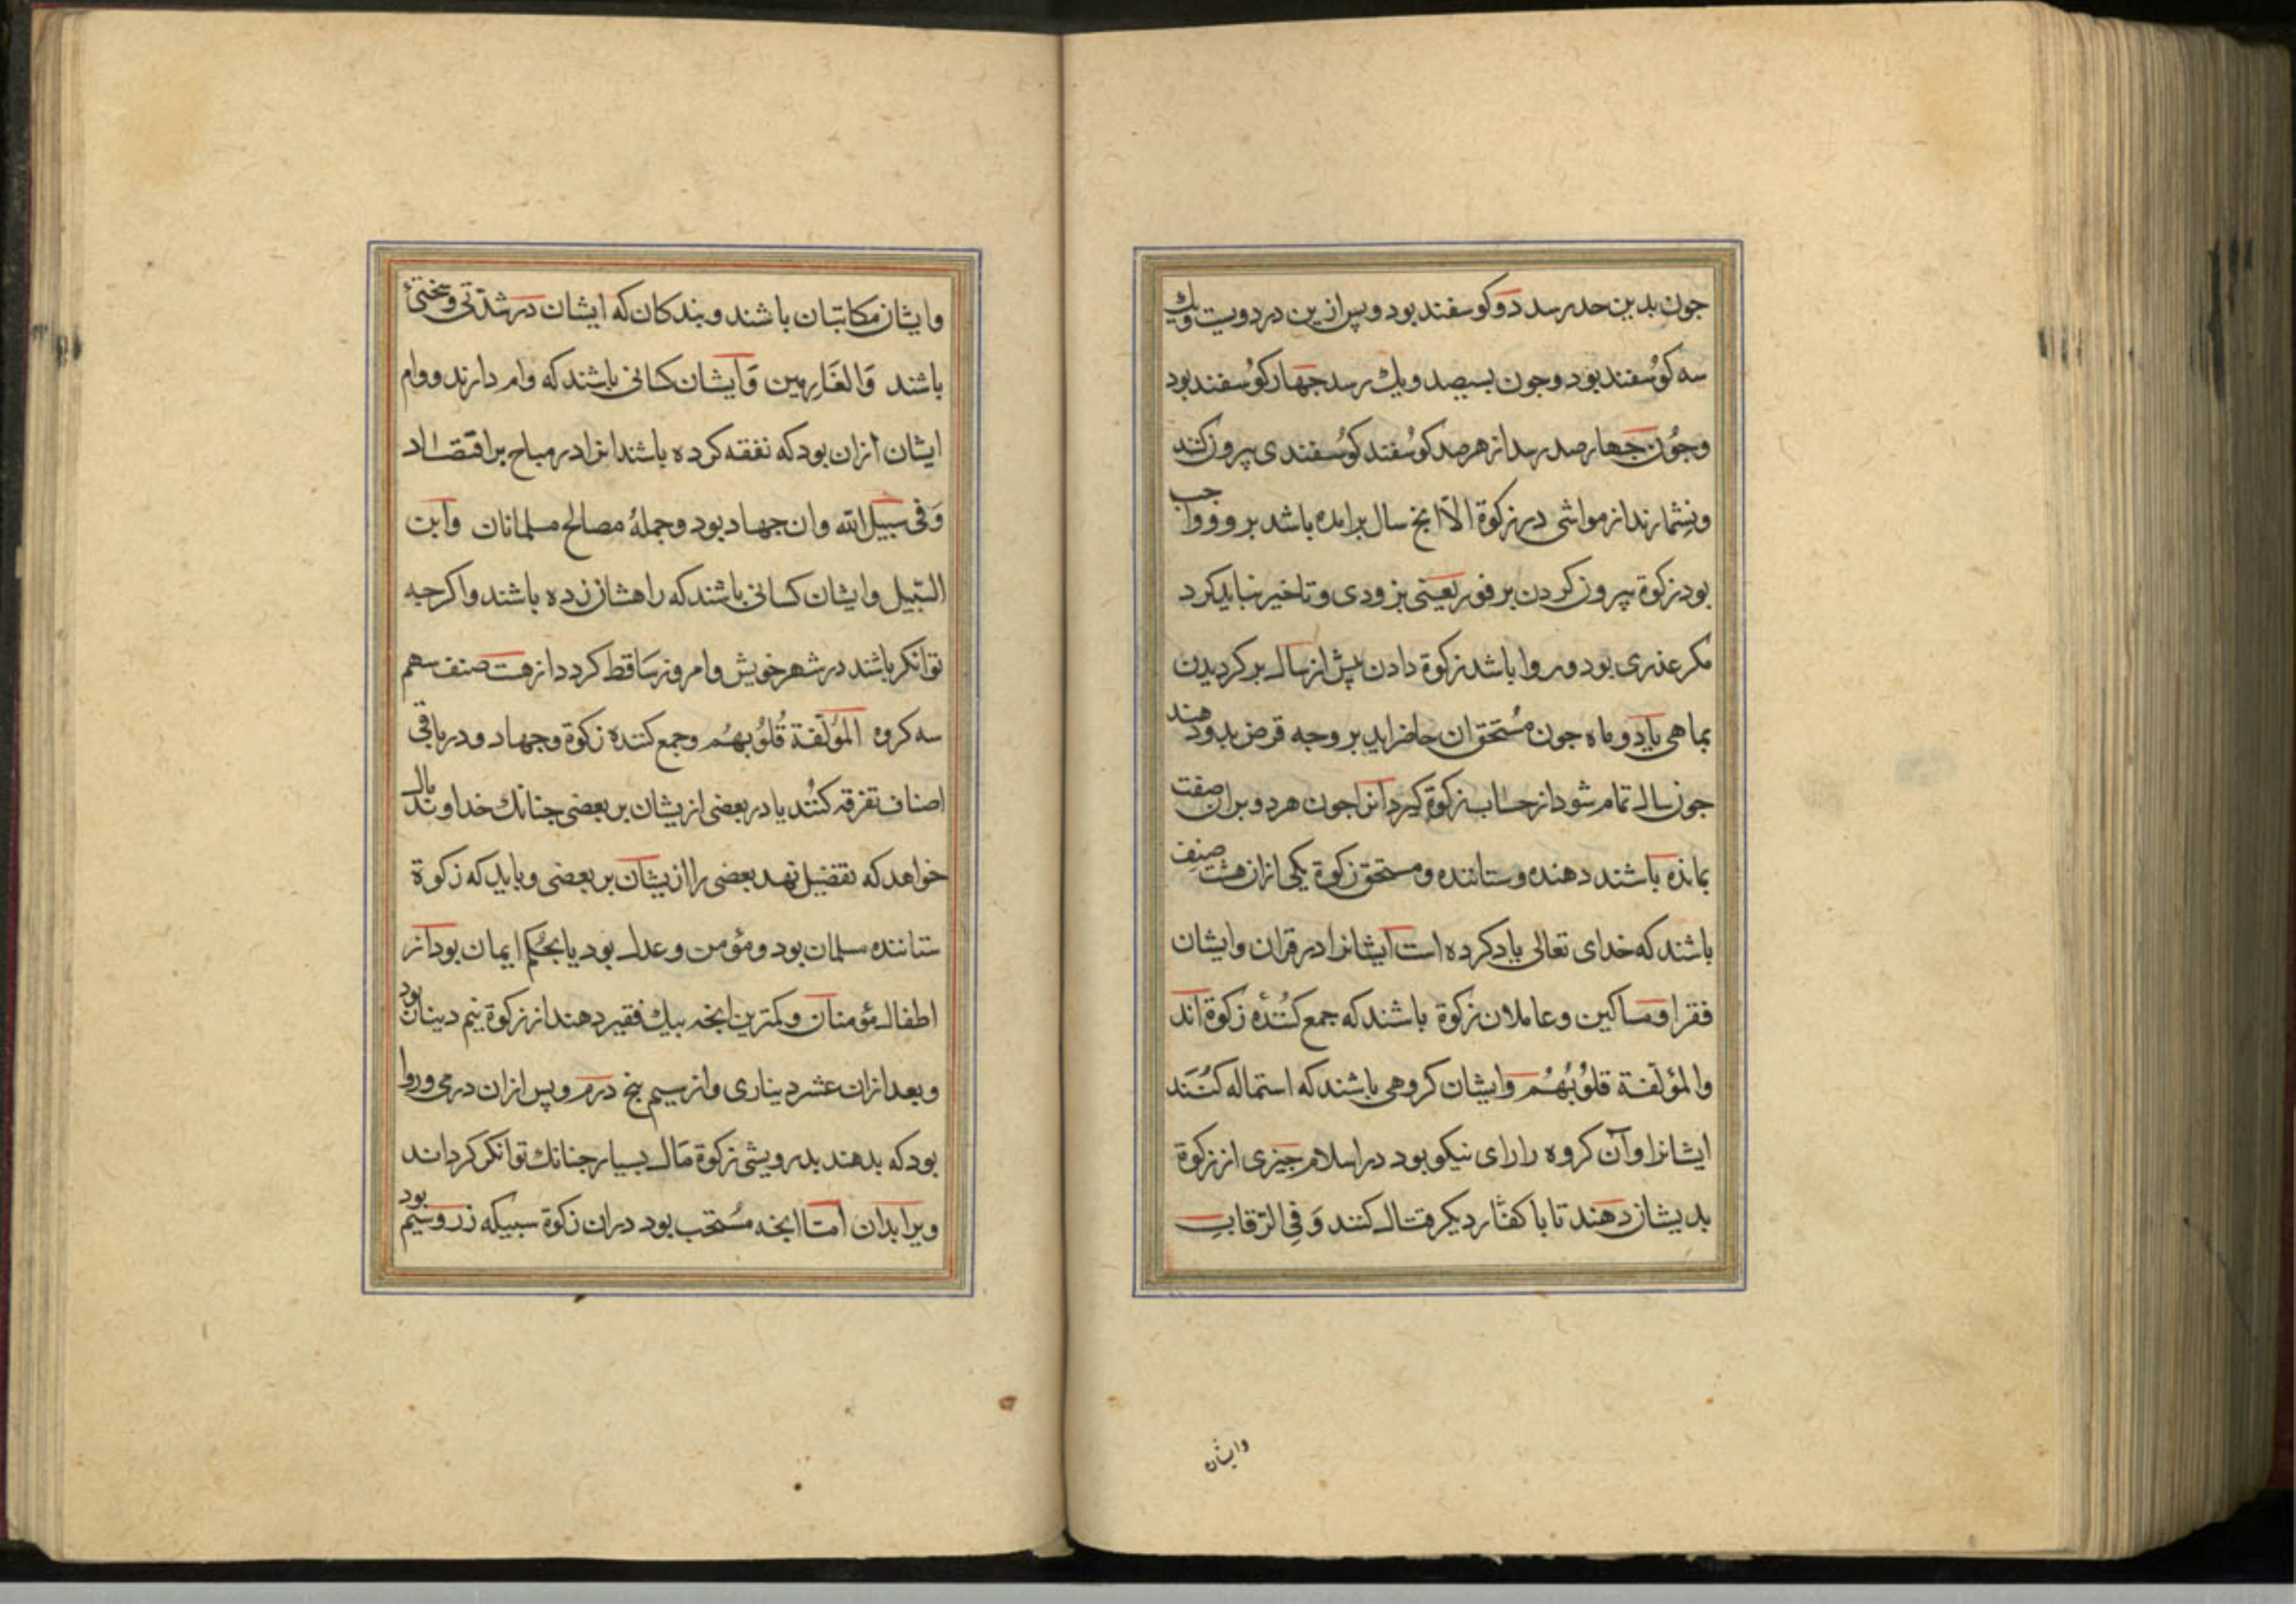 جون بدین حد رسد دو کوسفند بود و پس ازین در دویست و یك
سه کوسفند بود و جون بسیصد و یك رسد جهار کوسفند بود
و جون جهار صد رسد از هر صد کوسفند کوسفندی بیرون کنند
و نشمارند از مواشی در زکوة الا انج سال برامده باشد برو و واجب
بود زکوة بیرون کردن بر فور یعنی بزودی و تاخیر نباید کرد
مکر عذری بود و روا باشد زکوة دادن پیش از سال بر کردیدن
بماهی یا دو ماه جون مستحق ان حاضر اید بر وجه قرض بدو دهند
جون سال تمام شود از حساب زکوة کیرد انرا جون هر دو بران صفت
بمانده باشند دهنده و ستاننده و مستحق زکوة یکی ازان هشت صنف
باشند که خدای تعالی یاد کرده است ایشانرا در قران و ایشان
فقرا و مساکین و عاملان زکوة باشند که جمع کننده زکوة اند
والمؤلفة قلوبهم و ایشان کروهی باشند که استماله کنند
ایشانرا و آن کروه را رای نیکو بود در اسلام جیزی از زکوة
بدیشان دهند تا با کفار دیکر قتال کنند وَفِی الرّقابِ
وایشان
وایشان مکاتبان باشند و بندکان که ایشان در شدتی و سختئ
باشند وَالغَارِمین وَایشان کسانی باشند که وام دارند و وام
ایشان ازان بود که نفقه کرده باشند انرا در مباح براقتصاد
وَفی سبیل الله وان جهاد بود و جملهٔ مصالح مسلمانان وابن
السّبیل و ایشان کسانی باشند که راهشان زده باشند و اکرجه
توانکر باشند در شهر خویش و امروز ساقط کردد از هشت صنف سهم
سه کروه المؤلّفة قُلُوبهُم و جمع کننده زکوة و جهاد و در باقی
اصناف تفرقه کنند یا در بعضی ازیشان بر بعضی جنانك خداوند مال
خواهد که تفضیل نهد بعضی را ازیشان بر بعضی و باید که زکوة
ستاننده مسلمان بود و مؤمن و عدل بود یا بحکم ایمان بود از
اطفال مؤمنان و کمترین انجه بیك فقیر دهند از زکوة نیم دینار بود
و بعد ازان عشر دیناری و از سیم پنج درم و پس ازان درمی و روا
بود که بدهند بدرویشی زکوة مال بسیار جنانك توانکر کردانند
ویرا بدان امّا انجه مستحب بود دران زکوة سبیکه زر و سیم بود